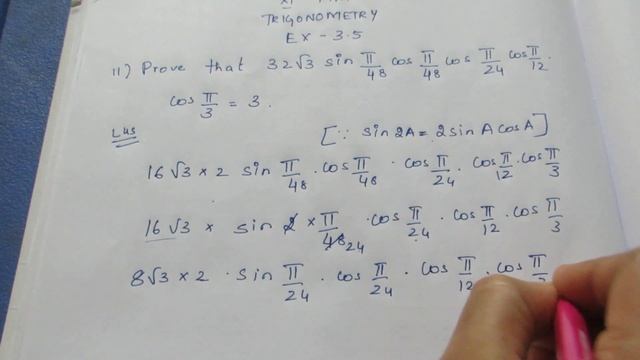 TRIGONOMETRY
EX - 3.5
11) Prove that 32√3 sin π/48 cos π/48 cos π/24 cos π/12.
cos π/3 = 3.
LHS
[∵ sin2A = 2sinAcosA]
16√3 × 2 sin π/48 . cos π/48 . cos π/24 . cos π/12 . cos π/3
16√3 × sin 2 × π/48 24 . cos π/24 . cos π/12 . cos π/3
8√3 × 2 . sin π/24 . cos π/24 . cos π/12 . cos π